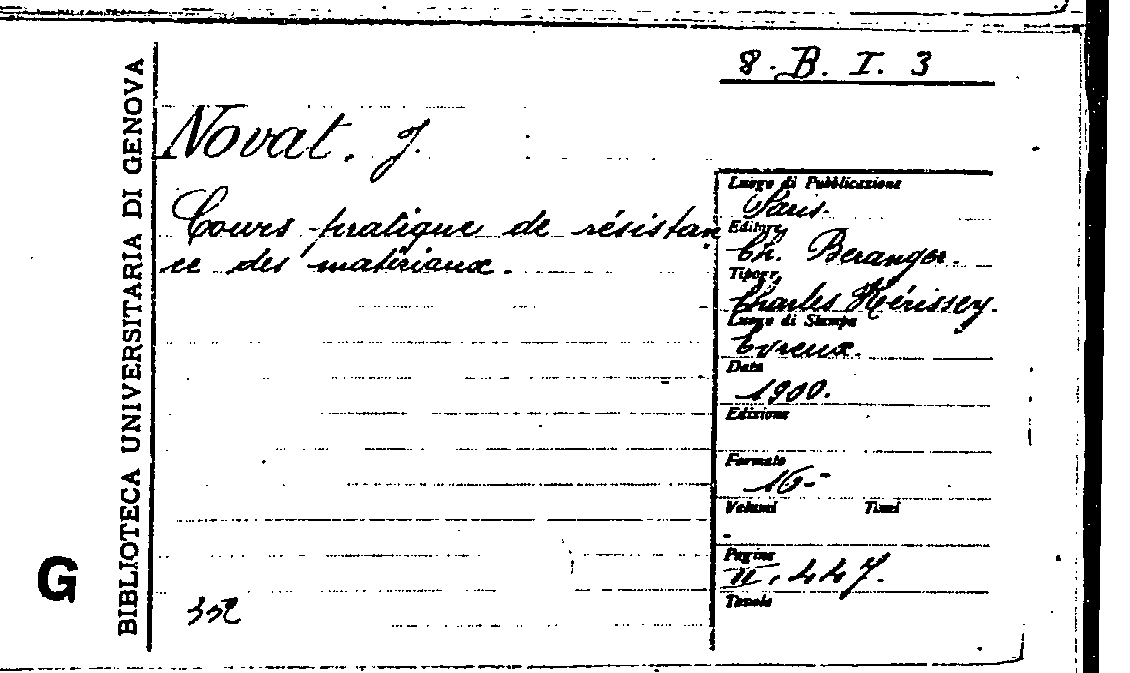 8. B. I. 3
BIBLIOTECA UNIVERSITARIA DI GENOVA
Novat. J.
Cours pratique de résistan
ce des matériaux.
Luogo di Pubblicazione
Paris.
Editore
Ch. Beranger.
Tipogr.
Charles Hérissey.
Luogo di Stampa
Evreux.
Data
1900.
Edizione
Formato
16-
Volumi Tomi
-
Pagine
II, 447.
Tavole
G